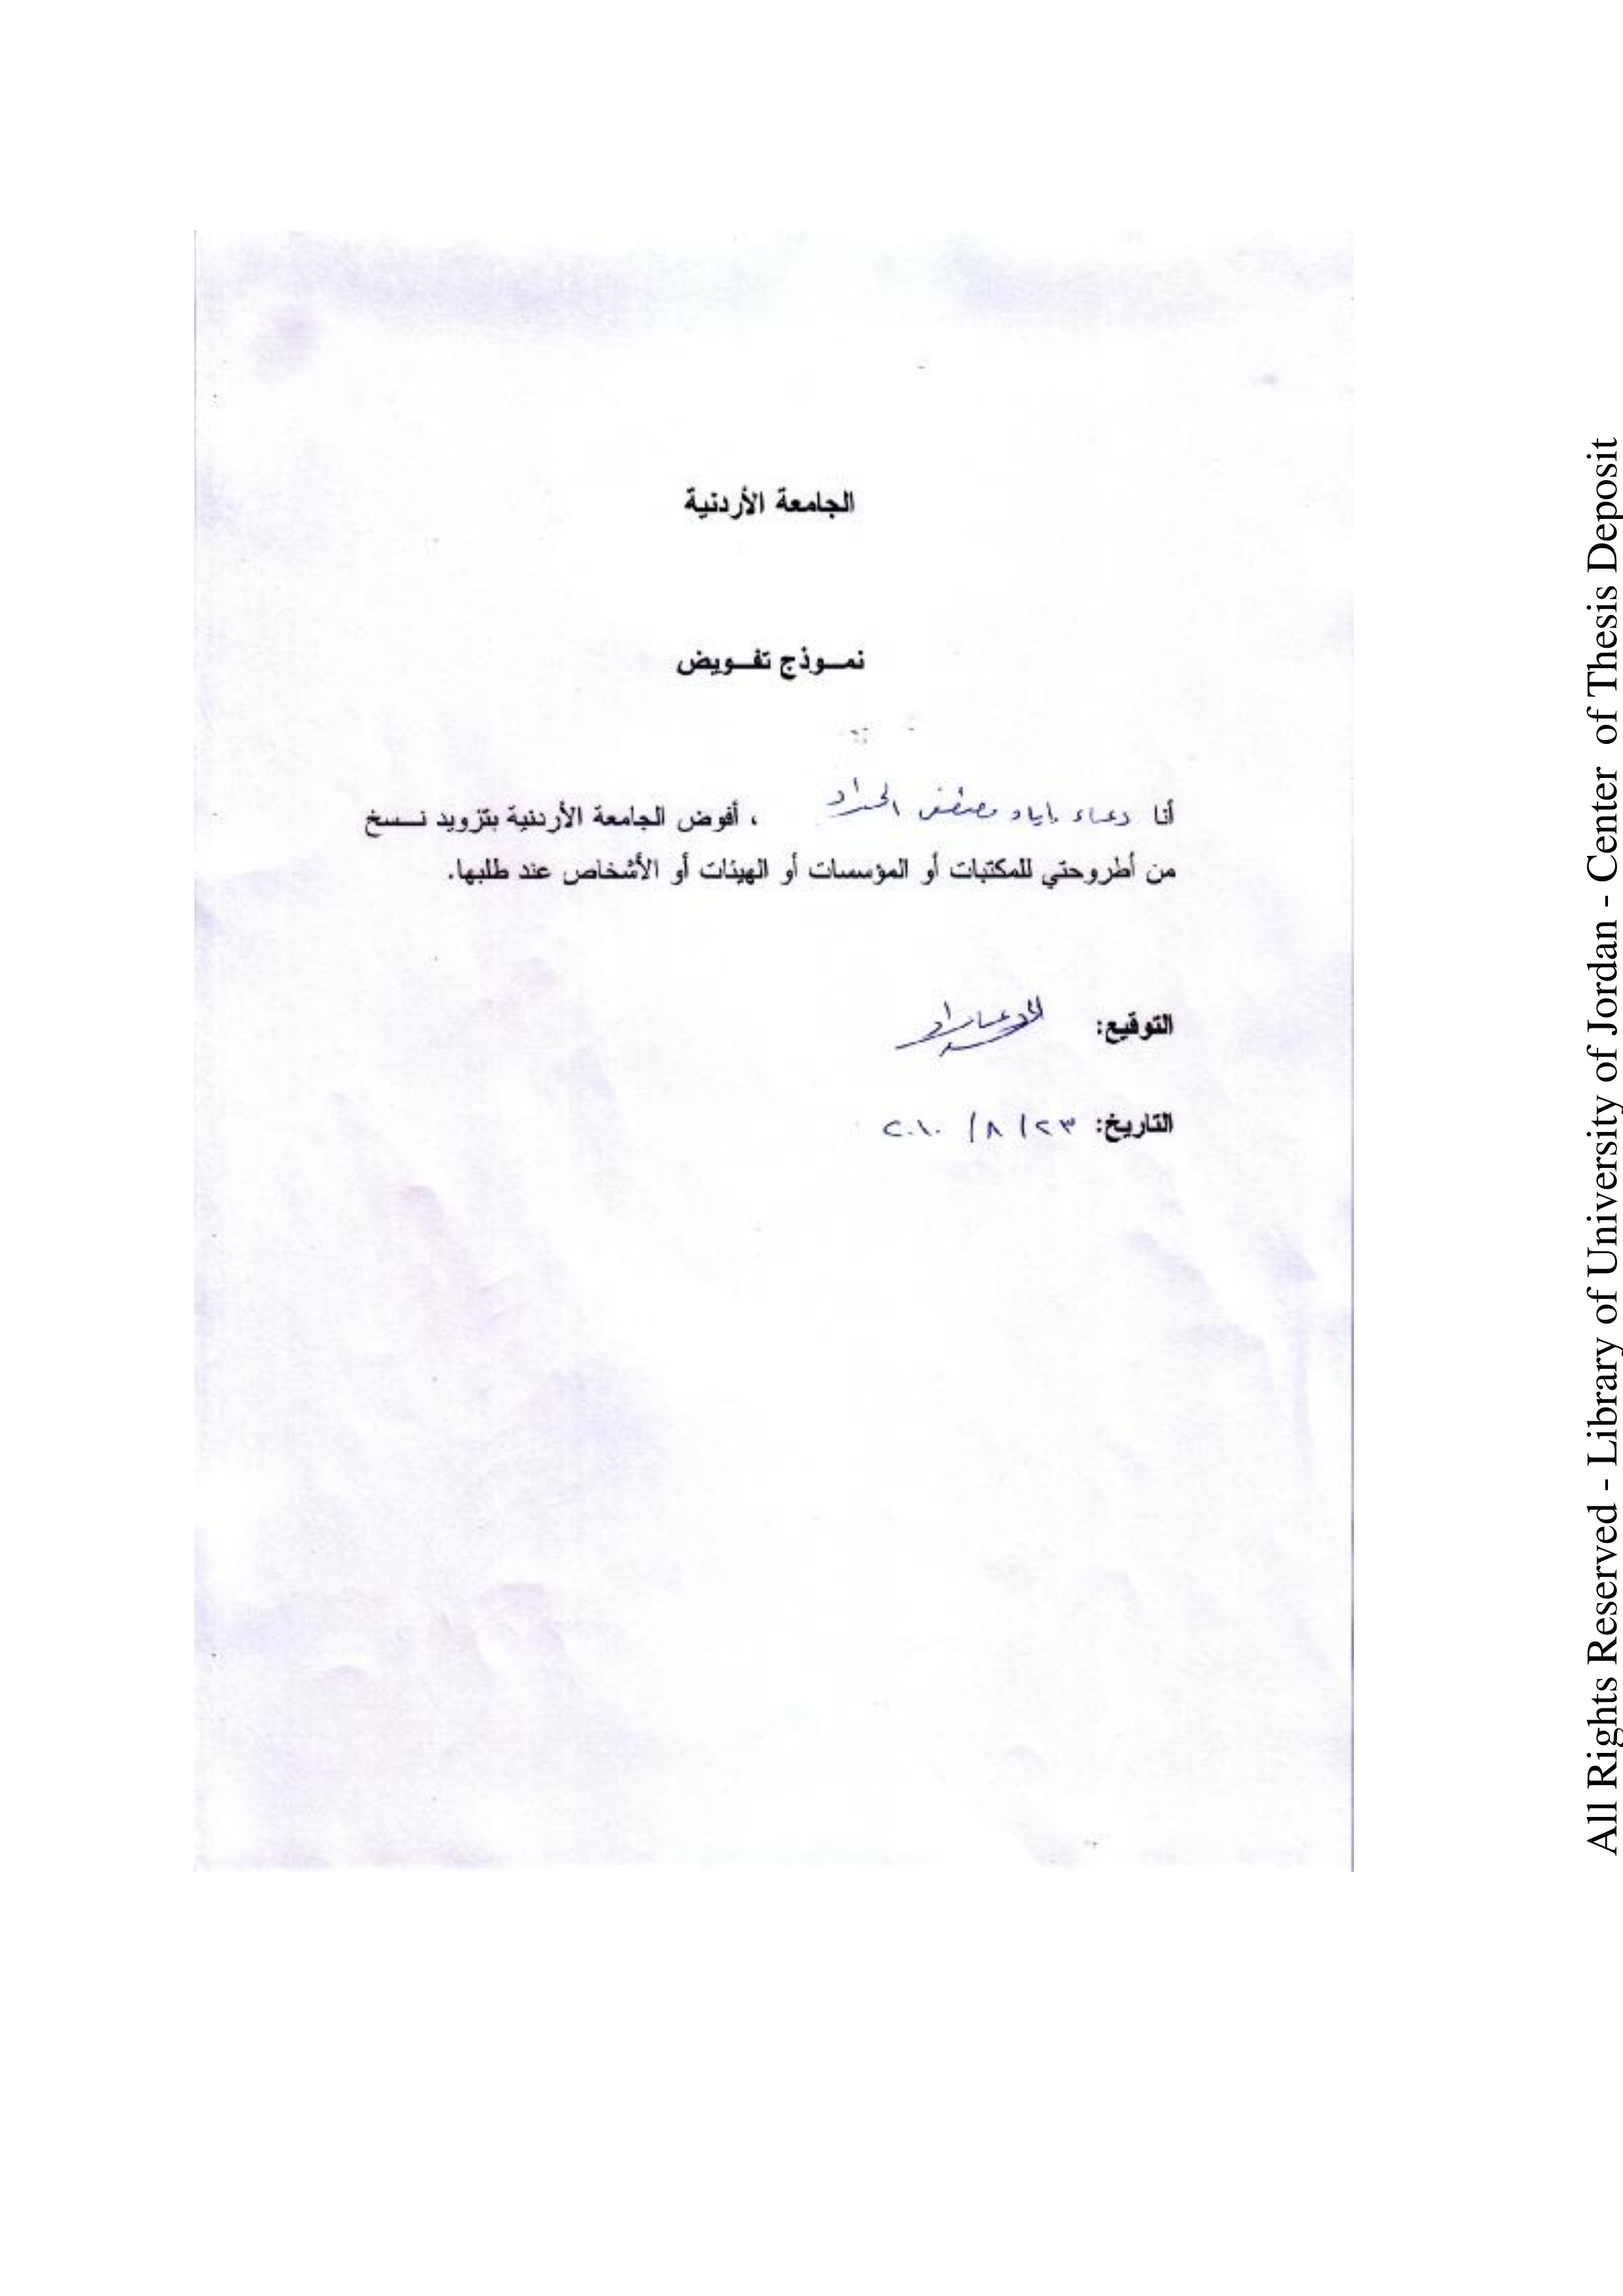 الجامعة الأردنية
نمـوذج تفـويض
أنا دعاء إياد مصطفى الحداد ، أفوض الجامعة الأردنية بتزويد نسخ
من أطروحتي للمكتبات أو المؤسسات أو الهيئات أو الأشخاص عند طلبها.
التوقيع:
التاريخ: ٢٣ / ٨ / ٢٠١٠
All Rights Reserved - Library of University of Jordan - Center of Thesis Deposit